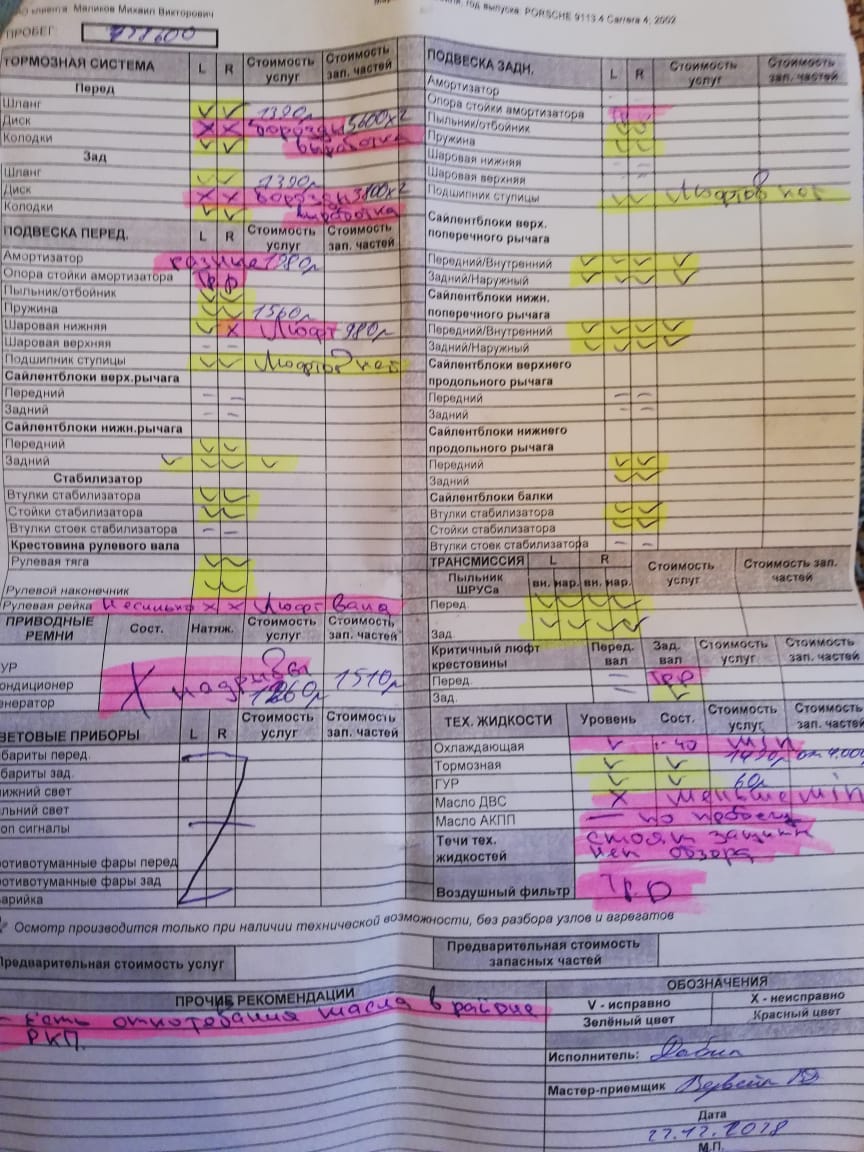 клиента: Маликов Михаил Викторович
год выпуска: PORSCHE 9113.4 Carrera 4; 2002
ПРОБЕГ:
ТОРМОЗНАЯ СИСТЕМА L R Стоимость услуг Стоимость зап. частей
Перед
Шланг V V 1390р
Диск X X борозды 5600х2
Колодки V V выработка
Зад
Шланг V V 1390р
Диск X X борозды 3800х2
Колодки V V выработка
ПОДВЕСКА ПЕРЕД. L R Стоимость услуг Стоимость зап. частей
Амортизатор 1980р
Опора стойки амортизатора Тр.р
Пыльник/отбойник V V
Пружина V V 1560р
Шаровая нижняя V X Люфт 980р
Шаровая верхняя – –
Подшипник ступицы V V Люфтов нет
Сайлентблоки верх.рычага
Передний – –
Задний – –
Сайлентблоки нижн.рычага
Передний V V
Задний V V V V
Стабилизатор
Втулки стабилизатора V V
Стойки стабилизатора V V
Втулки стоек стабилизатора – –
Крестовина рулевого вала
Рулевая тяга V V
Рулевой наконечник V V
Рулевая рейка Несильно X X Люфт вала
ПРИВОДНЫЕ РЕМНИ Сост. Натяж. Стоимость услуг Стоимость зап. частей
УР
ондиционер X надрывы 1510р
енератор 1260р
ВЕТОВЫЕ ПРИБОРЫ L R Стоимость услуг Стоимость зап. частей
бариты перед.
бариты зад.
ижний свет
льний свет
оп сигналы
отивотуманные фары перед
отивотуманные фары зад
арийка
ПОДВЕСКА ЗАДН. L R Стоимость услуг Стоимость зап. частей
Амортизатор
Опора стойки амортизатора Тр.р
Пыльник/отбойник V V
Пружина V V
Шаровая нижняя – –
Шаровая верхняя – –
Подшипник ступицы V V Люфтов нет
Сайлентблоки верх.
поперечного рычага
Передний/Внутренний V V V V
Задний/Наружный V V V V
Сайлентблоки нижн.
поперечного рычага
Передний/Внутренний V V V V
Задний/Наружный V V V V
Сайлентблоки верхнего
продольного рычага
Передний – –
Задний – –
Сайлентблоки нижнего
продольного рычага
Передний V V
Задний V V
Сайлентблоки балки
Втулки стабилизатора V V
Стойки стабилизатора V V
Втулки стоек стабилизатора – –
ТРАНСМИССИЯ L R Стоимость услуг Стоимость зап. частей
Пыльник ШРУСа вн. нар. вн. нар.
Перед. V V V V
Зад. V V V V
Критичный люфт крестовины Перед. вал Зад. вал Стоимость услуг Стоимость зап. частей
Перед. – Тр.р
Зад. – V
ТЕХ. ЖИДКОСТИ Уровень Сост. Стоимость услуг Стоимость зап. частей
Охлаждающая V -40 min
Тормозная V V 1490р от 4.000
ГУР V V 60р
Масло ДВС X меньше min
Масло АКПП — по пробегу
Течи тех. жидкостей стоят защиты нет обзора
Воздушный фильтр Тр.р
Осмотр производится только при наличии технической возможности, без разбора узлов и агрегатов
Предварительная стоимость услуг
Предварительная стоимость запасных частей
ПРОЧИЕ РЕКОМЕНДАЦИИ
- есть отпотевания масла в районе
РКП.
ОБОЗНАЧЕНИЯ
V - исправно X - неисправно
Зелёный цвет Красный цвет
Исполнитель:
Мастер-приемщик
Дата
М.П.